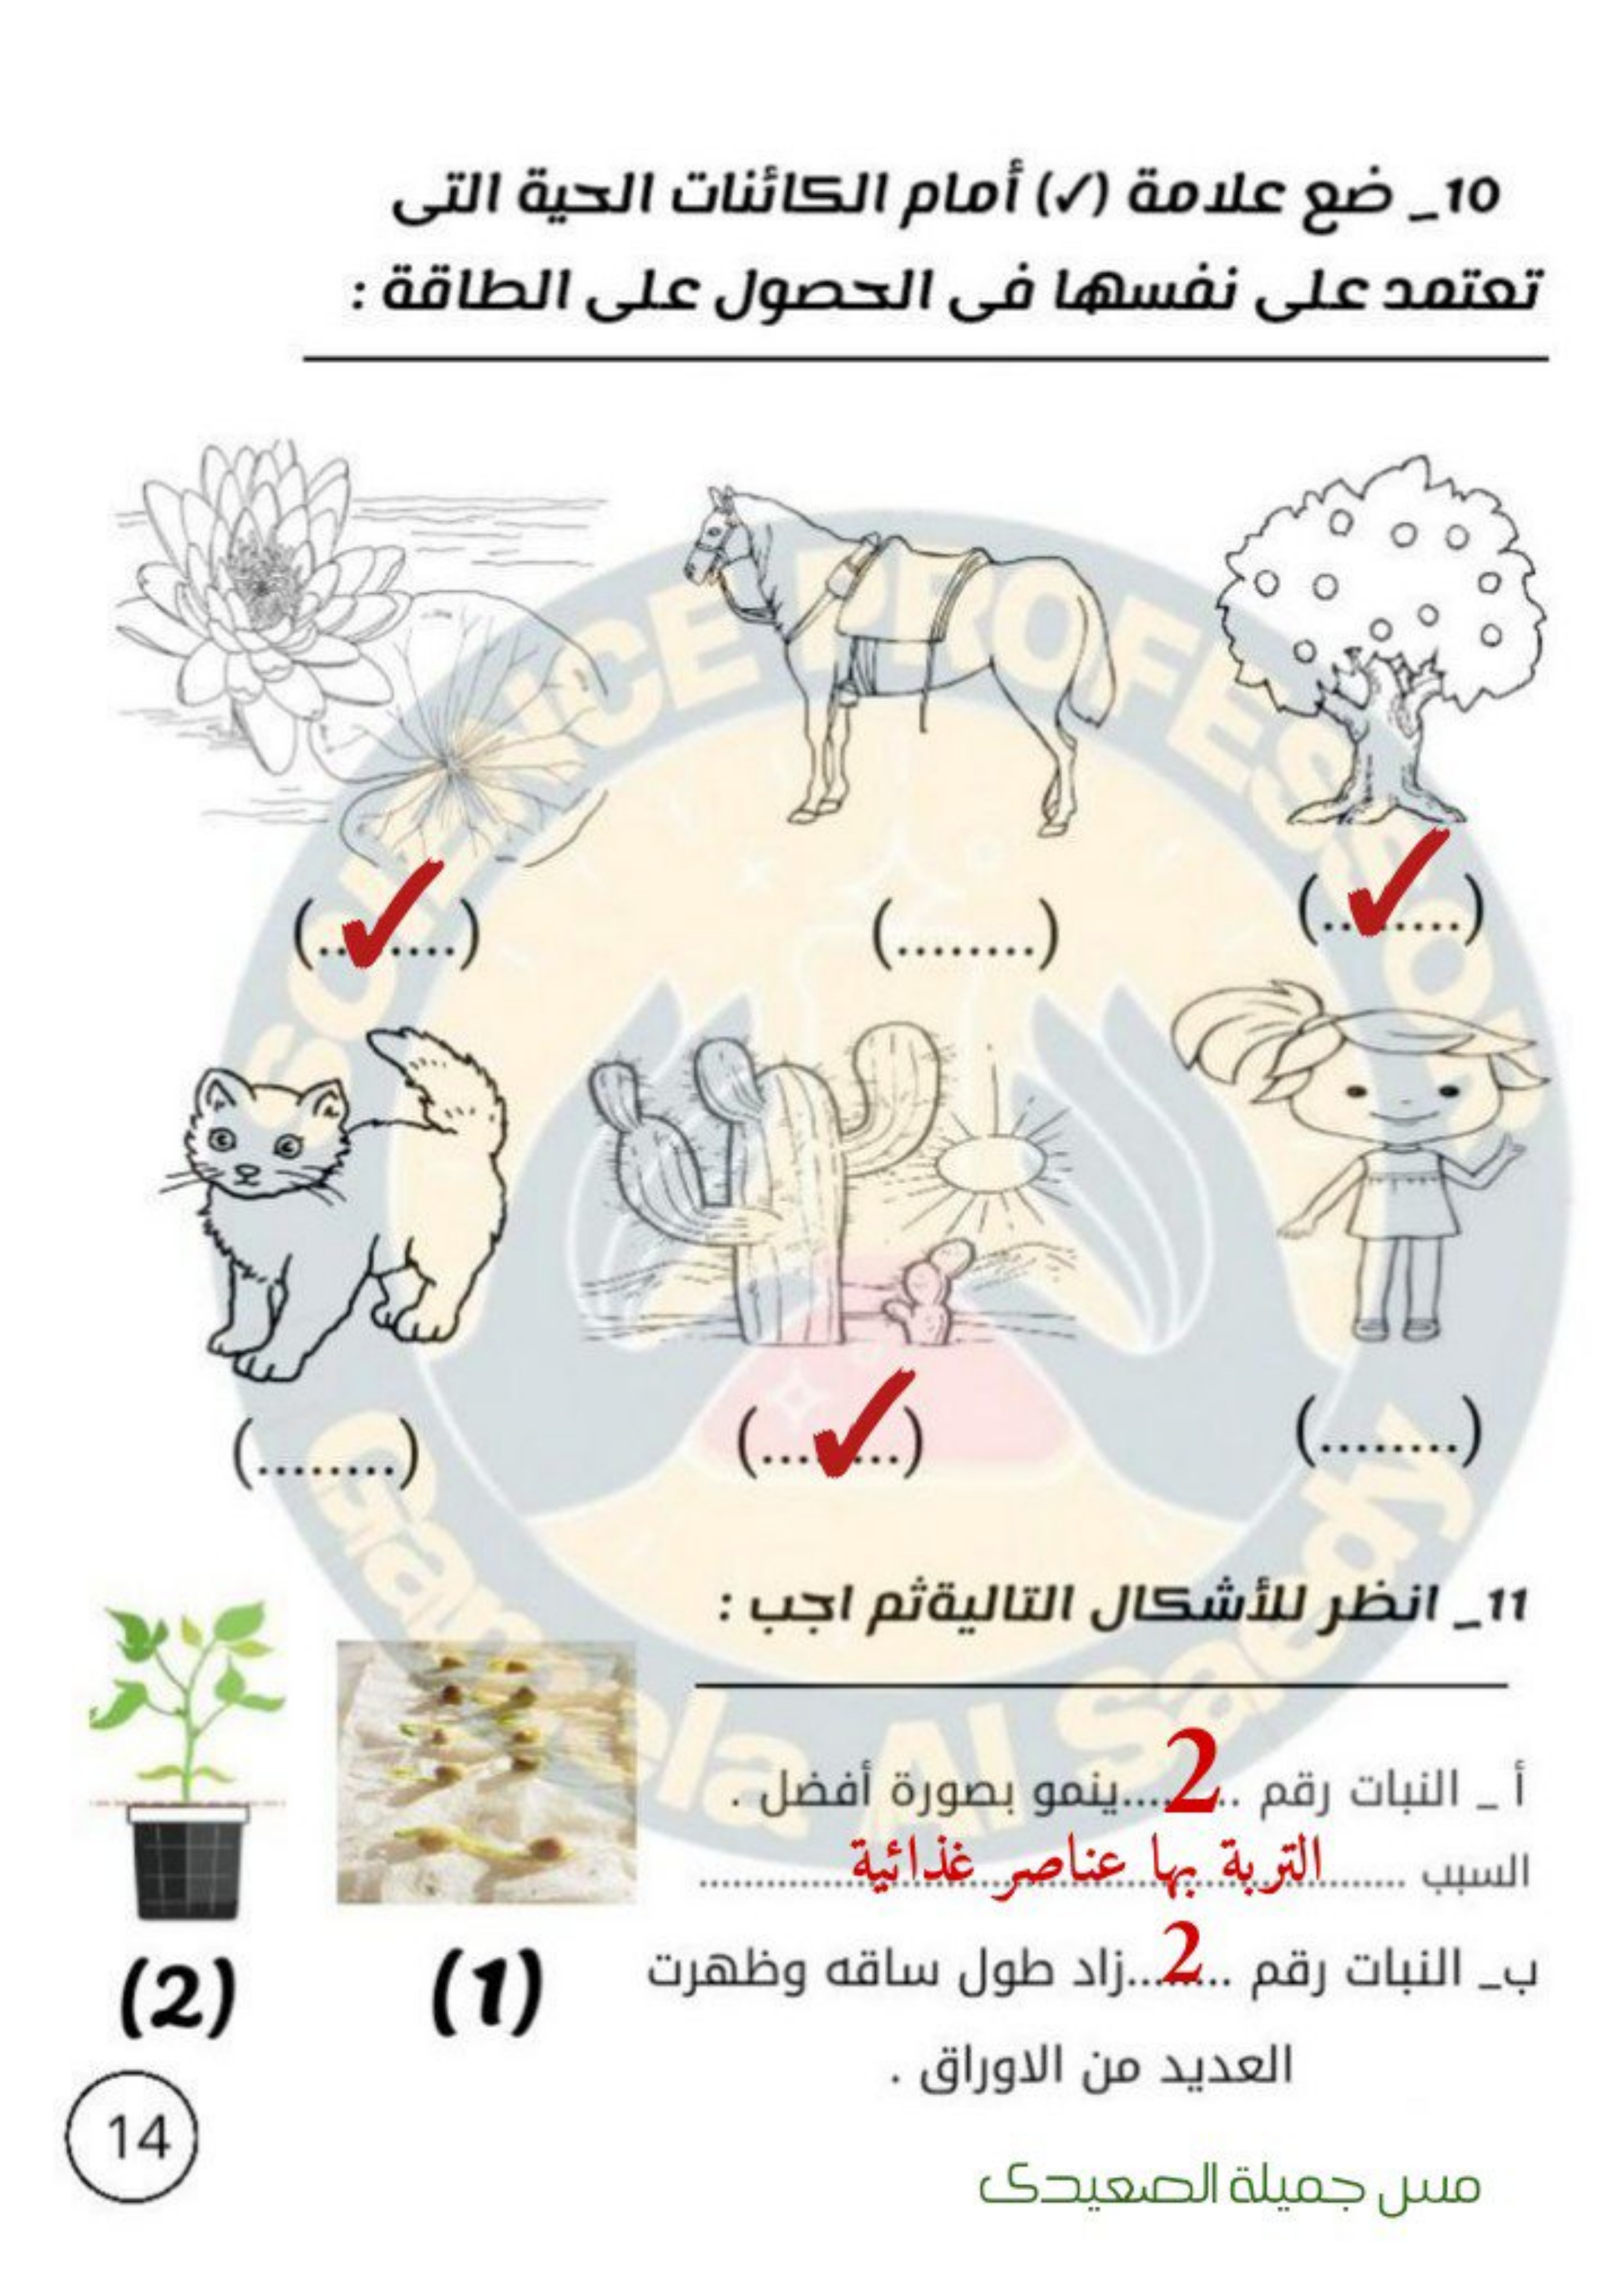 10_ ضع علامة (✓) أمام الكائنات الحية التى
تعتمد على نفسها فى الحصول على الطاقة :
(........) (........) (........)
✓ ✓
(........) (........) (........)
✓
11_ انظر للأشكال التاليةثم اجب :
أ _ النبات رقم ..2....ينمو بصورة أفضل .
السبب ......التربة بها عناصر غذائية......
ب_ النبات رقم ..2....زاد طول ساقه وظهرت
العديد من الاوراق .
(1) (2)
14
مس جميلة الصعيدى
SCIENCE PROFESSOR
Gameela Al Saeedy